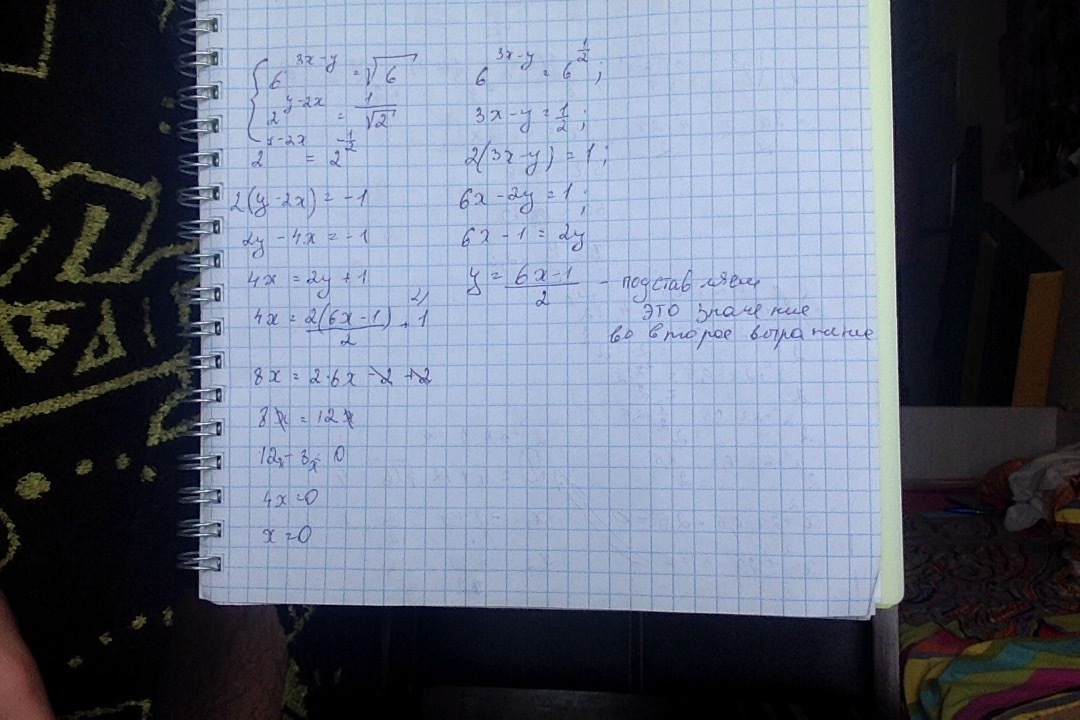 6^{3x-y} = √6
2^{y-2x} = 1/√2
2^{y-2x} = 2^{-1/2}
2(y-2x) = -1
2y - 4x = -1
4x = 2y + 1
4x = 2(6x-1)/2 + 1
8x = 2·6x - 2 + 2
8x = 12x
12x - 8x = 0
4x = 0
x = 0
6^{3x-y} = 6^{1/2};
3x - y = 1/2;
2(3x-y) = 1;
6x - 2y = 1;
6x - 1 = 2y
y = (6x-1)/2 - подставляем
это значение
во второе выражение